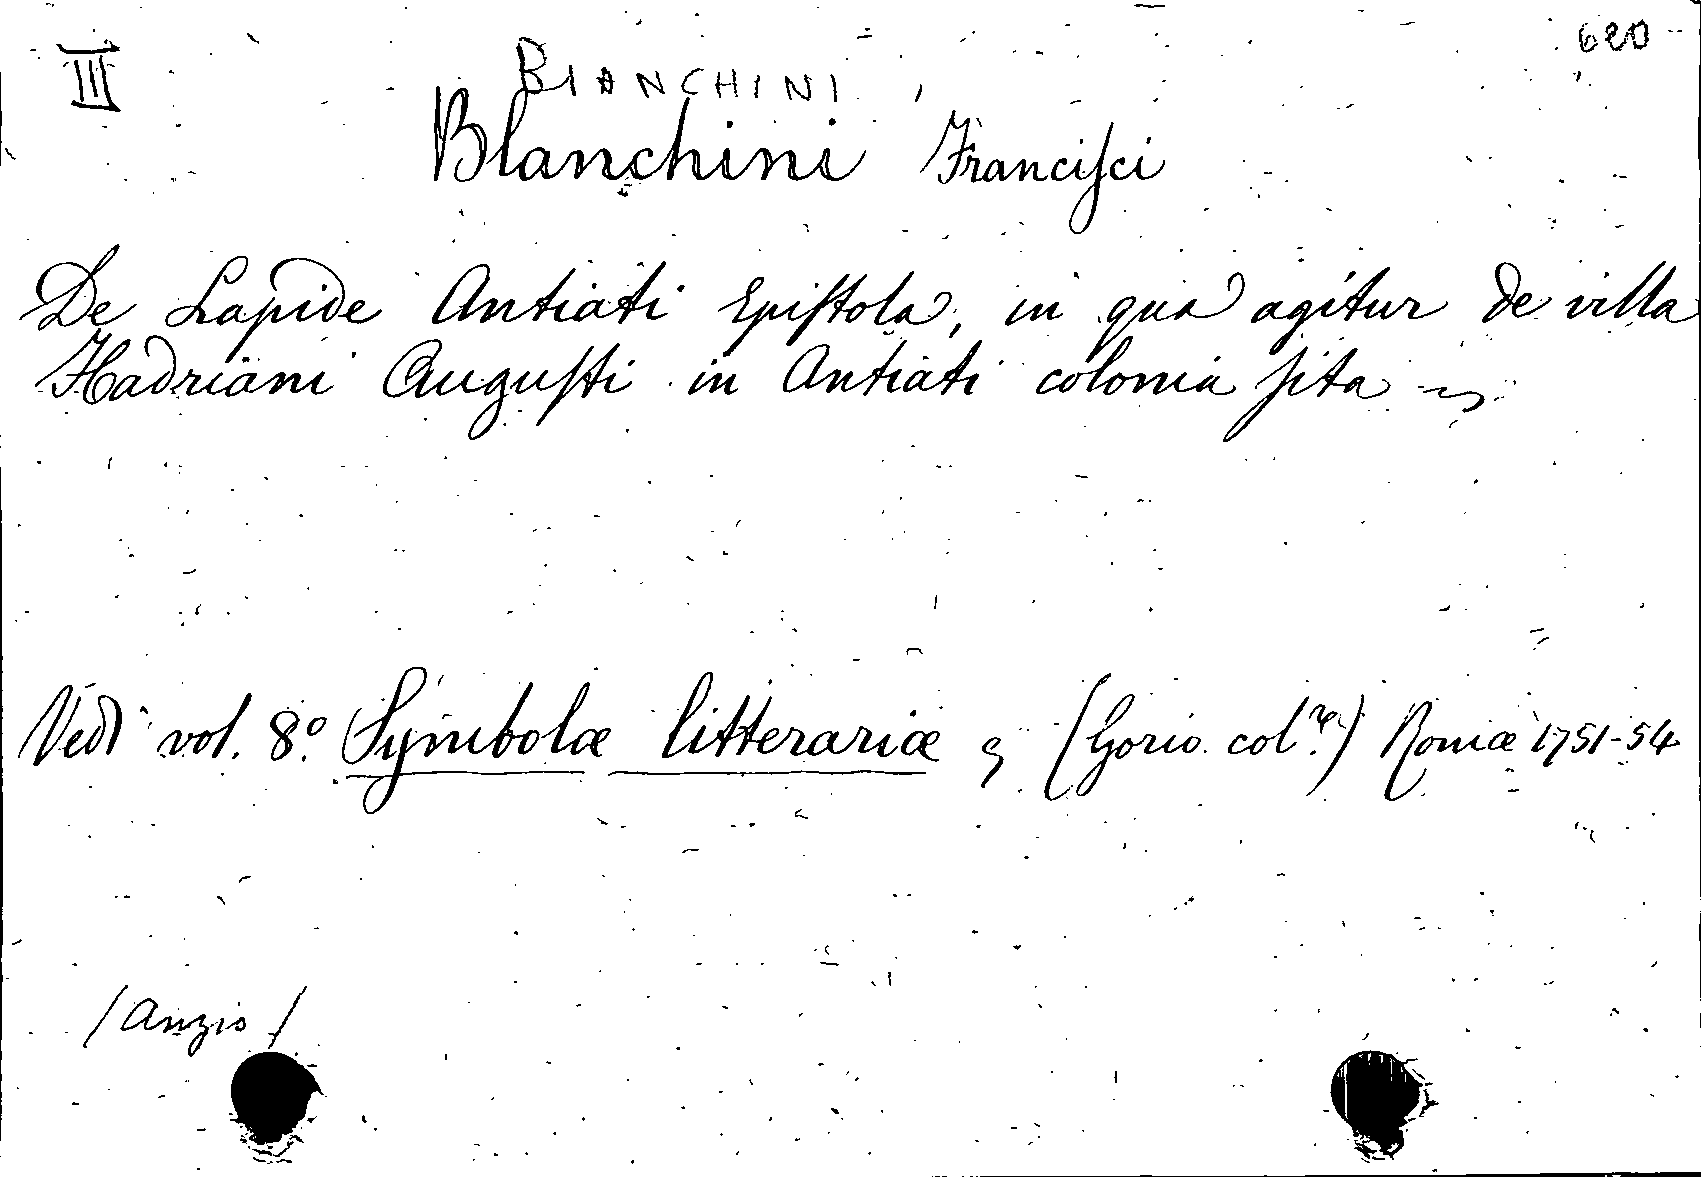 III
620
BIANCHINI,
Blanchini Franciſci
De Lapide Antiati Epiſtola, in qua agitur de villa
Hadriani Auguſti in Antiati colonia ſita
Vedi vol. 8.º Symbolæ litterariæ (Gorio col.re) Romæ 1751-54
/Anzio/